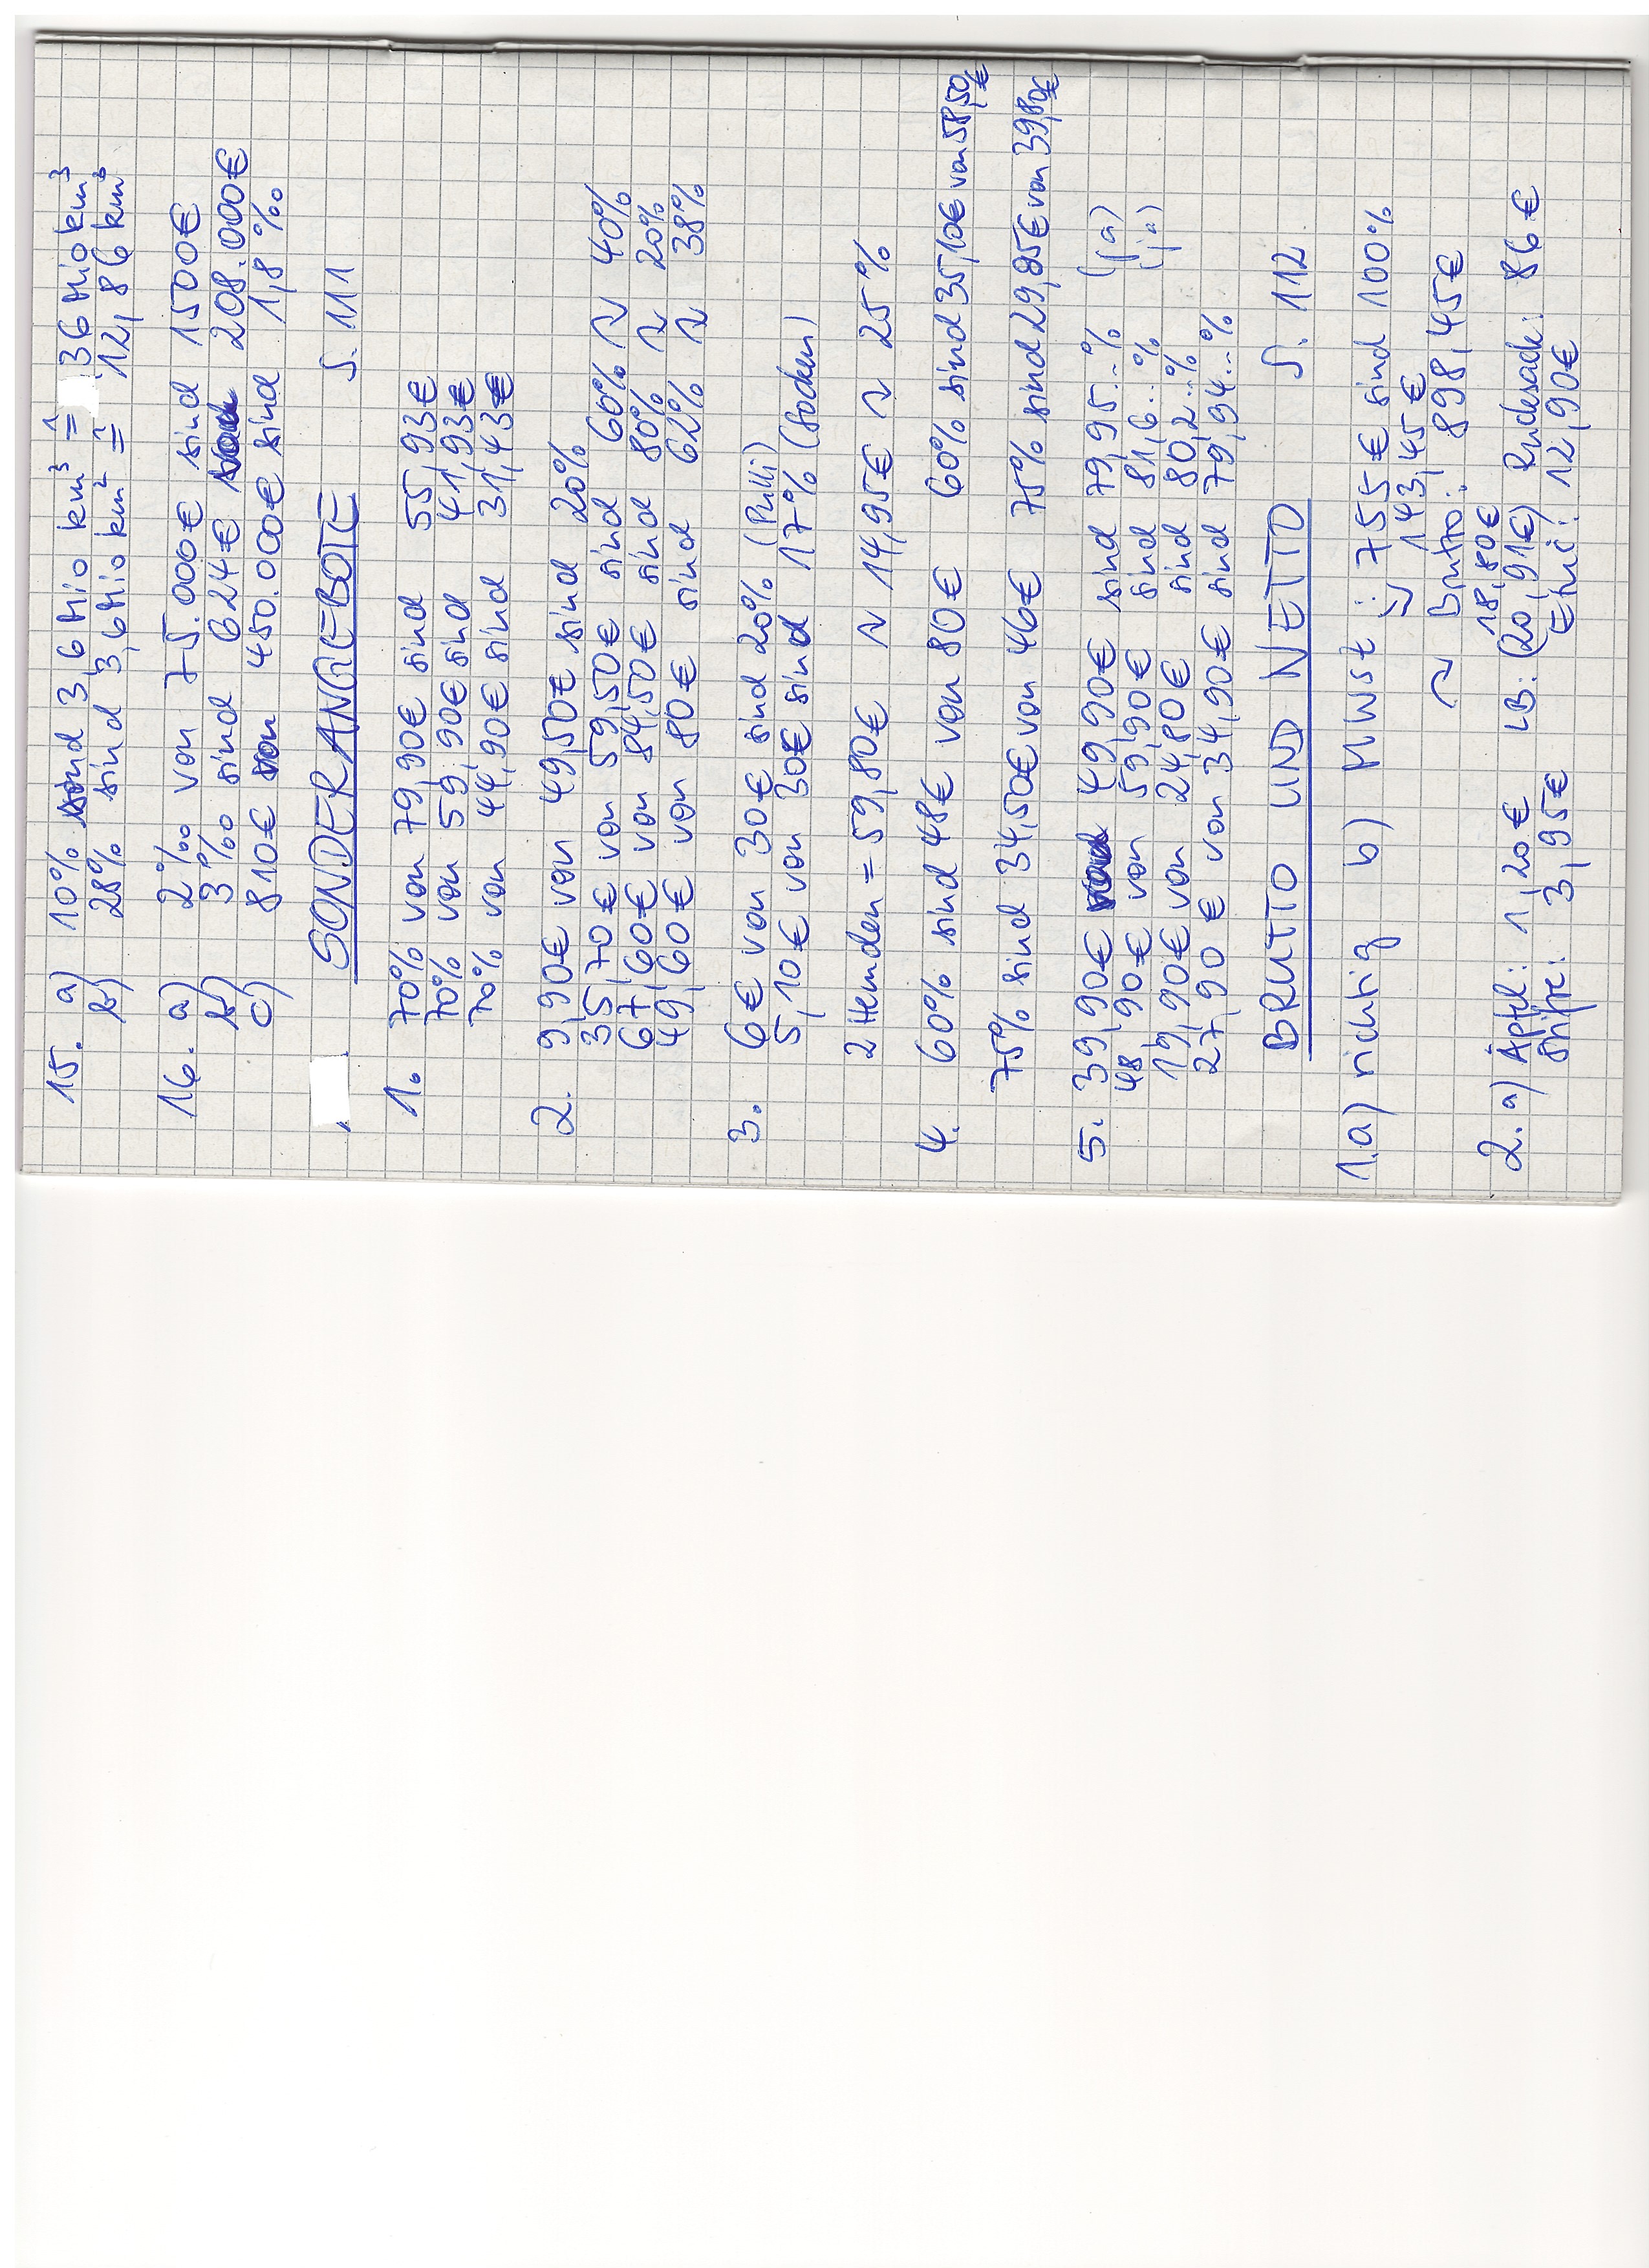 15. a) 10% sind 3,6 Mio km³ ≙ 36 Mio km³
b) 28% sind 3,6 Mio km² ≙ 12,86 km³
16. a) 2‰ von 75.000€ sind 1500€
b) 3‰ sind 624€ sind 208.000€
c) 810€ von 450.000€ sind 1,8‰
SONDERANGEBOTE S. 111
1. 70% von 79,90€ sind 55,93€
70% von 59,90€ sind 41,93€
70% von 44,90€ sind 31,43€
2. 9,90€ von 49,50€ sind 20%
35,70€ von 59,50€ sind 60% ~ 40%
67,60€ von 84,50€ sind 80% ~ 20%
49,60€ von 80€ sind 62% ~ 38%
3. 6€ von 30€ sind 20% (Pulli)
5,10€ von 30€ sind 17% (Socken)
2 Hemden = 59,80€ ~ 14,95€ ~ 25%
4. 60% sind 48€ von 80€ 60% sind 35,10€ von 58,50€
75% sind 34,50€ von 46€ 75% sind 29,85€ von 39,80€
5. 39,90€ von 49,90€ sind 79,95..% (ja)
48,90€ von 59,90€ sind 81,6..% (ja)
19,90€ von 24,80€ sind 80,2..%
27,90€ von 34,90€ sind 79,94..%
BRUTTO UND NETTO S. 112
1.a) richtig b) MWst: 755€ sind 100%
↳ 143,45€
~ Brutto: 898,45€
18,80€
2. a) Äpfel: 1,20€ LB: (20,91€) Rucksack: 86€
Stifte: 3,95€ Etui: 12,90€